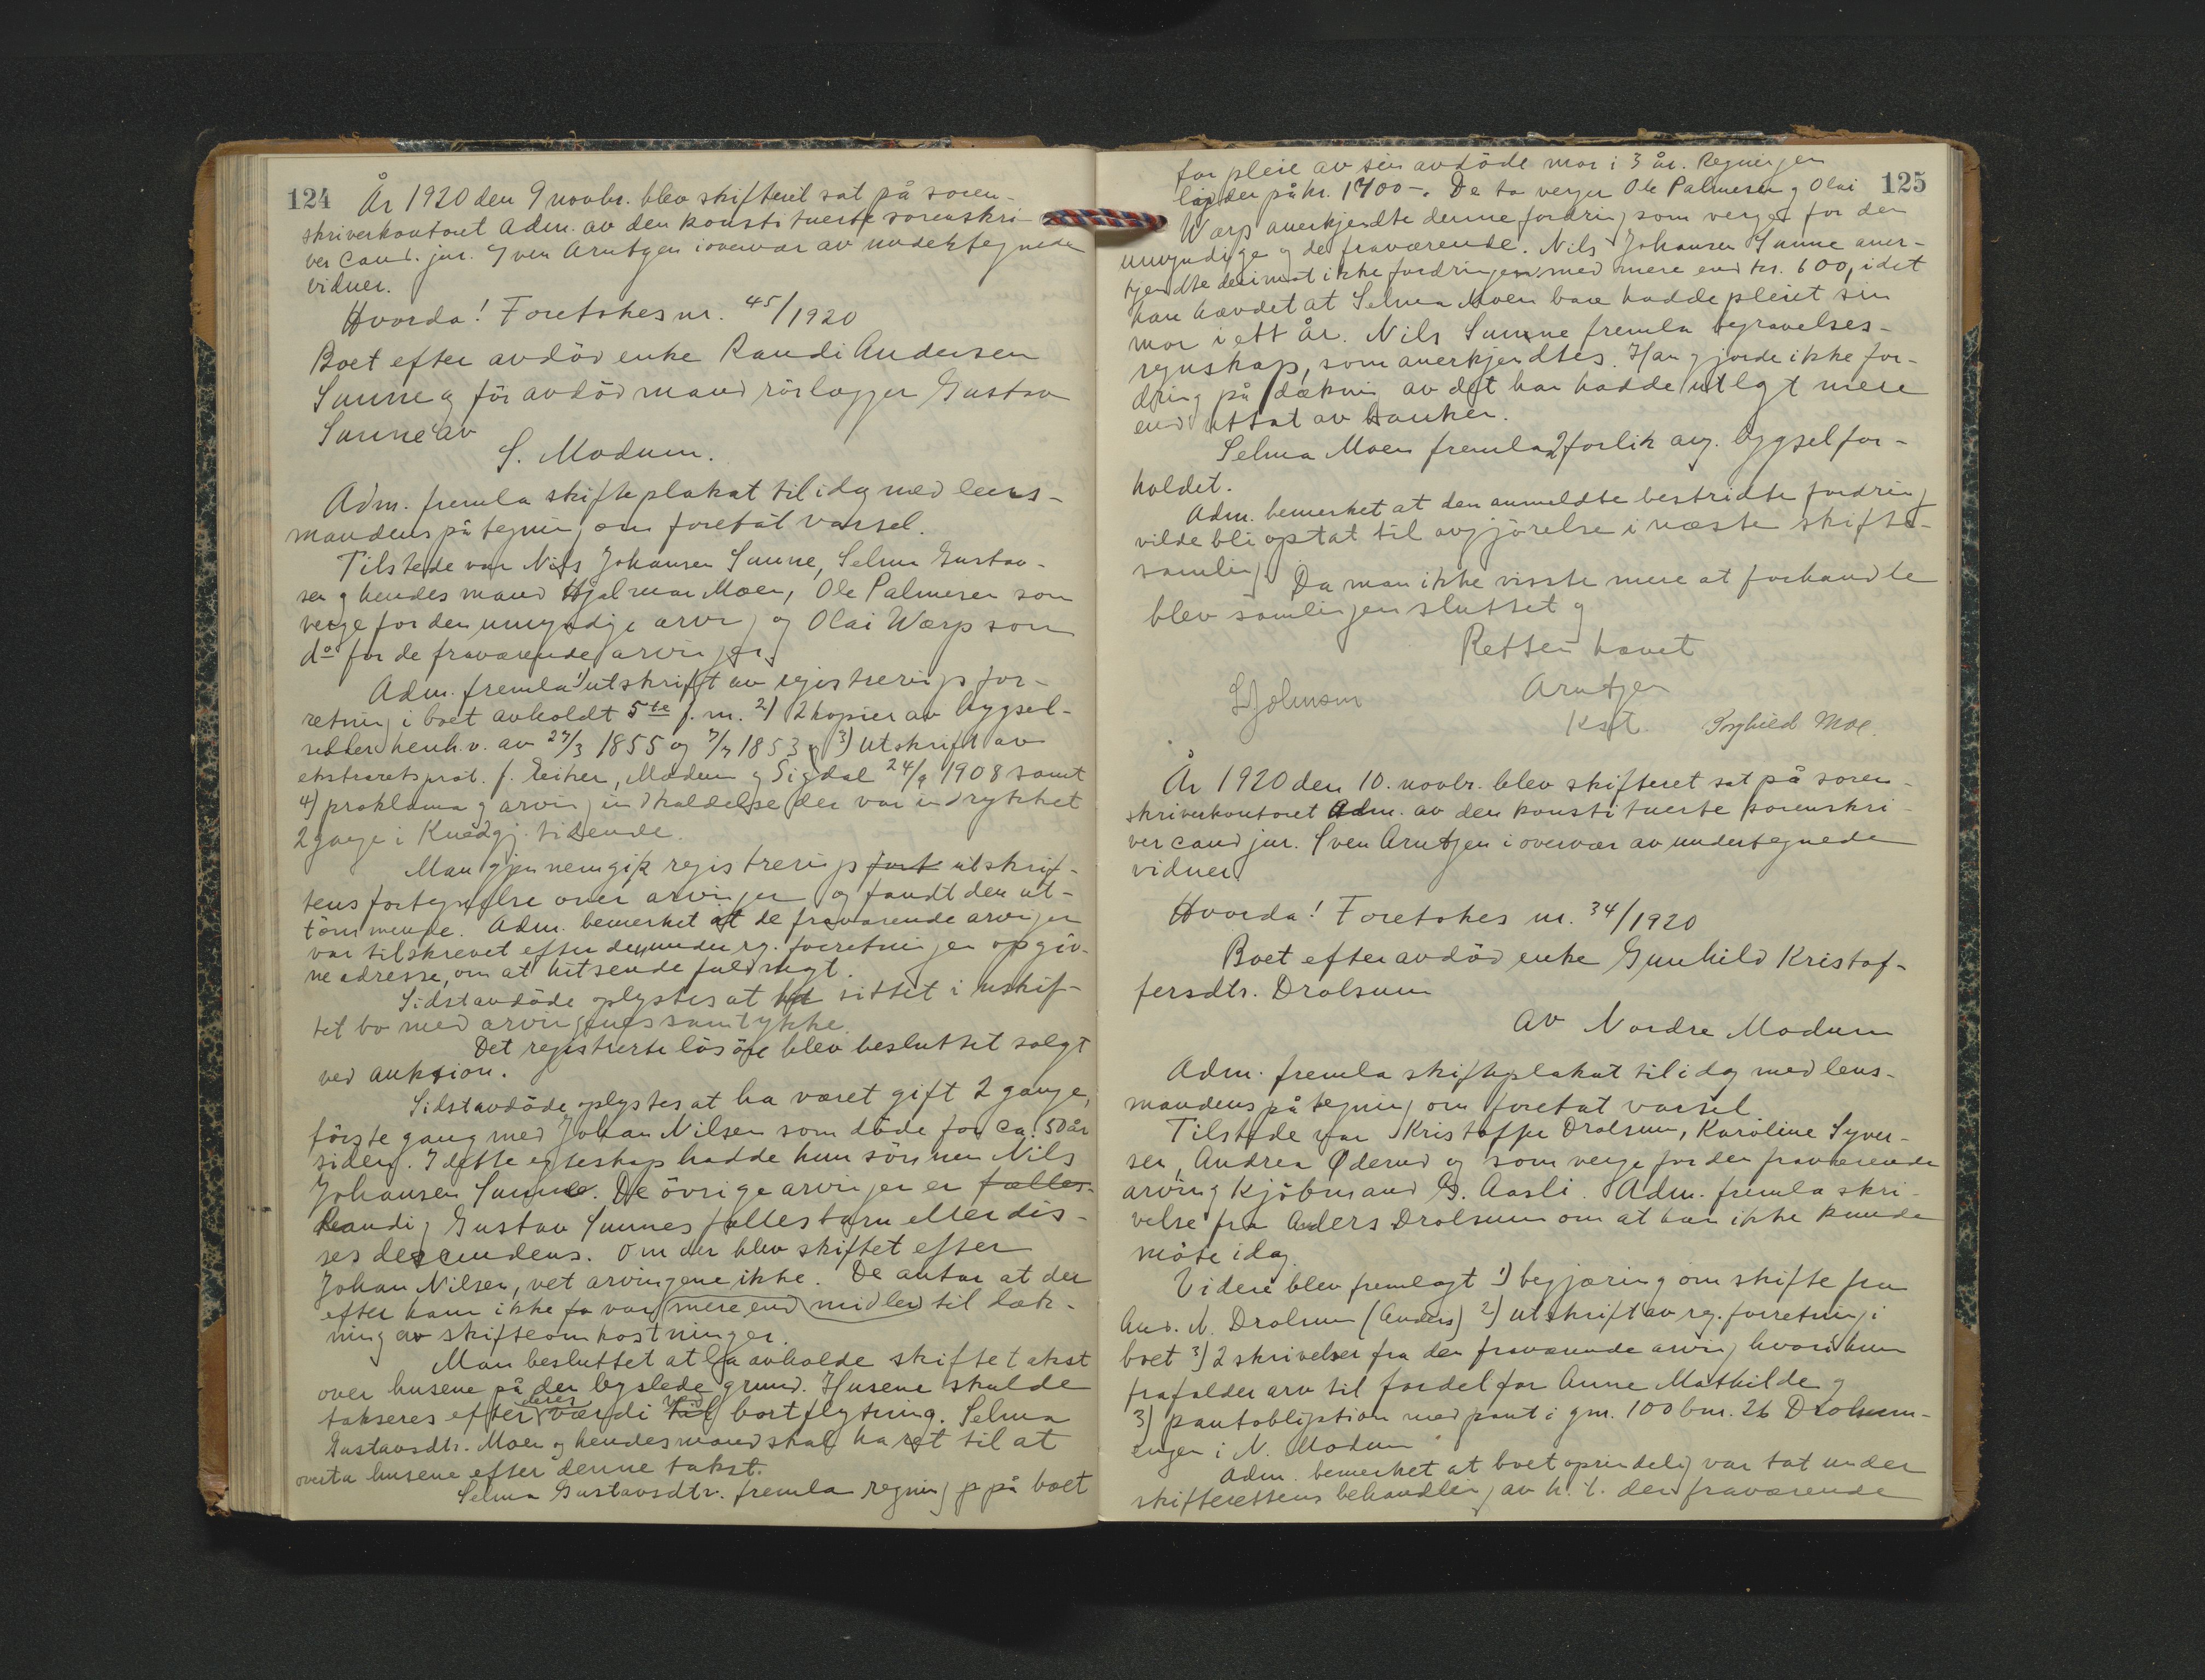 124
År 1920 den 9 novbr. blev skifteret sat på soren-
skriverkontoret Adm. av den konstituerte sorenskri-
ver cand. jur. Sven Arntzen i overvær av undertegnede
vidner.
Hvorda! Foretokes nr. 45/1920
Boet efter avdöd enke Randi Andersen
Sunne og för avdöd mand rörlægger Gustav
Sunne av
S. Modum.
Adm. fremla skifteplakat til idag med lens-
mandens påtegning om foretat varsel.
Tilstede var Nils Johansen Sunne, Selma Gustav-
sen og hendes mand Hjalmar Moen, Ole Palmesen som
verge for den umyndige arving og Olai Wærp som
do for de fraværende arvinger.
Adm. fremla 1) utskrift av registreringsfor-
retning i boet avholdt 5te f. m. 2) 2 kopier av bygsel-
sedler henh.v. av 27/3 1855 og 7/7 1853 og 3) utskrift av
ekstraretsprot. f. Eiker, Modum og Sigdal 24/9 1908 samt
4) proklama og arvingindkaldelse der var indrykket
2 gange i Kundgj. tidende.
Man gjennemgik registrerings fort utskrif-
tens fortegnelse over arvinger og fandt den ut-
tömmende. Adm. bemerket at de fraværende arvinger
var tilskrevet efter den under rg. forretningen opgiv-
ne adresse, om at hitsende fuldmagt.
Sidstavdöde oplystes at ha sittet i uskif-
tet bo med arvingenes samtykke.
Det registrerte lösöre blev besluttet solgt
ved auktion.
Sidstavdöde oplystes at ha været gift 2 gange,
förste gang med Johan Nilsen som döde for ca. 50 år
siden. I dette egteskap hadde hun sönnen Nils
Johansen Sunne. De övrige arvinger er fælles-
Randi og Gustav Sunnes fællesbarn eller dis-
ses descendens. Om der blev skiftet efter
Johan Nilsen, vet arvingene ikke. De antar at der
efter ham ikke var mere end midler til dæk-
ning av skifteomkostninger.
Man besluttet at la avholde skiftetakst
over husene på den bygslede grund. Husene skulde
takseres efter deres værdi til ved bortflytning. Selma
Gustavsdtr. Moen og hendes mand skal ha ret til at
overta husene efter denne takst.
Selma Gustavsdtr. fremla regning på boet
125
for pleie av sin avdöde mor i 3 år. Regningen
lyder på kr. 1700-. De to verger Ole Palmesen og Olai
Wærp anerkjendte denne fordring som verger for den
umyndige og de fraværende. Nils Johansen Sunne aner-
kjendte derimot ikke fordringen med mere end kr. 600, idet
han hævdet at Selma Moen bare hadde pleiet sin
mor i ett år. Nils Sunne fremla begravelses-
regnskap, som anerkjendtes. Han gjorde ikke for-
dring på dækning av det han hadde utlagt mere
end uttat av banken.
Selma Moen fremla 2 forlik ang. bygselfor-
holdet.
Adm. bemerket at den anmeldte bestridte fordring
vilde bli optat til avgjörelse i næste skifte-
samling. Da man ikke visste mere at forhandle
blev samlingen sluttet og
Retten hævet
Arntzen
Kst.
Borghild Moe.
År 1920 den 10. novbr. blev skifteret sat på soren-
skriverkontoret Adm. av den konstituerte sorenskri-
ver cand jur. Sven Arntzen i overvær av undertegnede
vidner.
Hvorda! Foretokes nr. 34/1920
Boet efter avdöd enke Gunhild Kristof-
fersdtr. Drolsum
av Nordre Modum
Adm. fremla skifteplakat til idag med lens-
mandens påtegning om foretat varsel.
Tilstede var Kristoffer Drolsum, Karoline Syver-
sen, Andrea Øderud og som verge for den fraværende
arving kjöbmand G. Aasli. Adm. fremla skri-
velse fra Anders Drolsum om at han ikke kunde
möte idag.
Videre blev fremlagt 1) begjæring om skifte fra
And. N. Drolsum (Anders) 2) utskrift av rg. forretning i
boet 3) 2 skrivelser fra den fraværende arving hvori hun
frafalder arv til fordel for Anne Mathilde og
3) pantobligation med pant i gnr. 100 bnr. 26 Drolsum-
engen i N. Modum
Adm. bemerket at boet oprindelig var tat under
skifterettens behandling av h. t. den fraværende